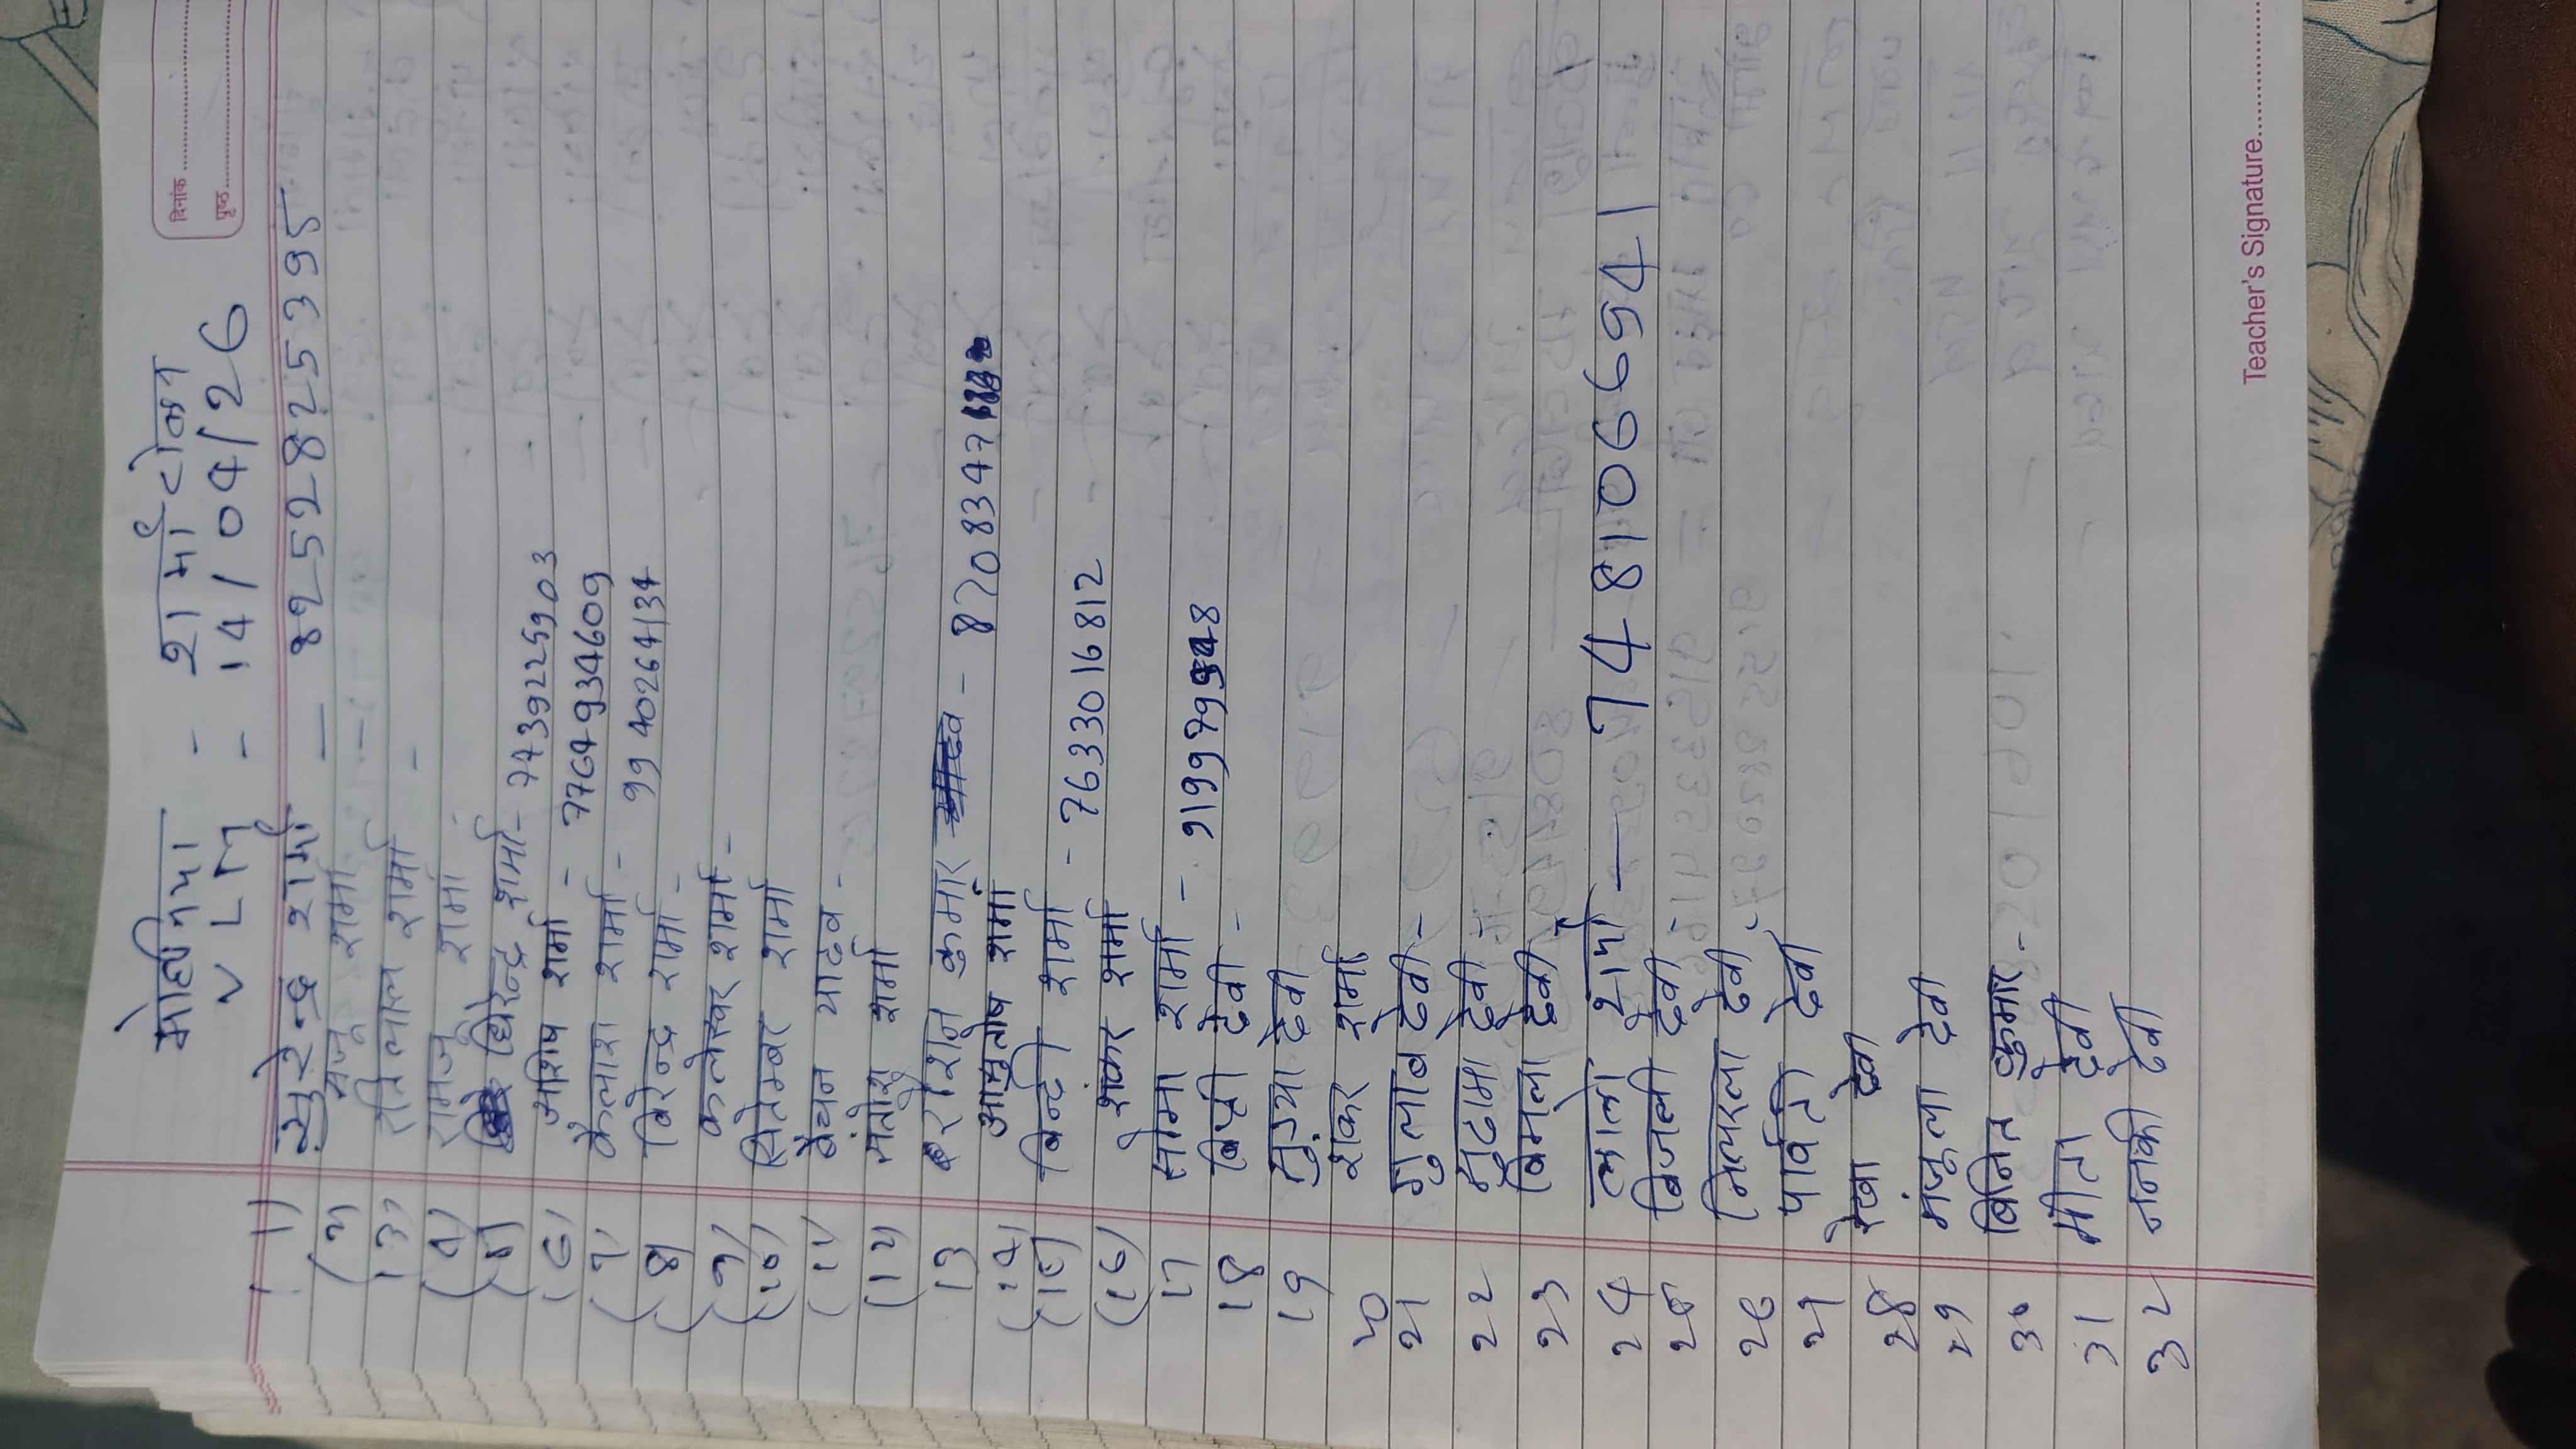 दिनांक
पृष्ठ
मोहनिया - शर्मा टोला
VLM - 14/04/26
(1) सुरेन्द्र शर्मा - 8252825395
(२) राजू शर्मा
(3) रतिलाल शर्मा -
(4) रामजू शर्मा
(5) धिरेन्द्र शर्मा - 7739225903
(6) आशिष शर्मा - 7764934609
(7) कैलाश शर्मा - 9940264134
(8) विरेन्द्र शर्मा -
(9) कलेस्वर शर्मा -
(10) सितेम्बर शर्मा
(11) बेचन यादव -
(12) संतोश शर्मा
13 रोशन कुमार - 8708347
(14) आसुतोष शर्मा
(15) बिन्दी शर्मा - 7633016812
(16) शंकर शर्मा
17 सोमा शर्मा - 9199799548
18 देवी -
19 देवी
२० शंकर शर्मा
21 गुलाब देवी -
22 सुदामा देवी
23 बिमला देवी -
24 लालो शर्मा — 7481066941
25 बिजली देवी
26 देवी -
27 पार्वती देवी
28 रेखा देवी
29 मंजुला देवी
30 बिनित कुमार
31 मीता देवी
32 ननकी देवी
Teacher's Signature